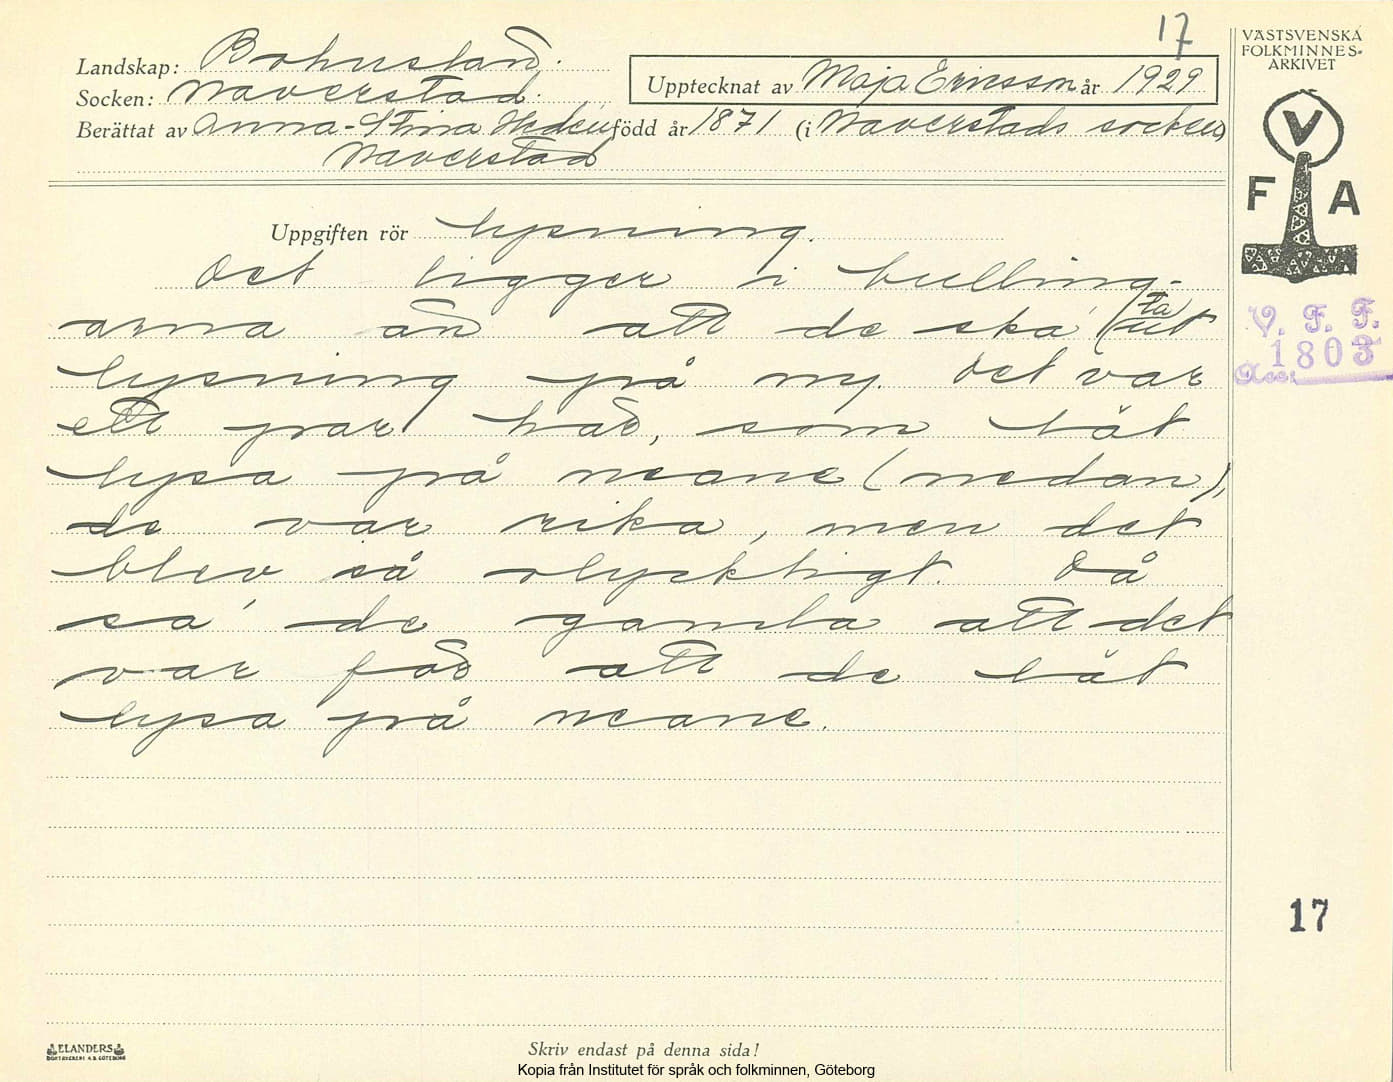 17
VÄSTSVENSKA
FOLKMINNES-
ARKIVET
Landskap: Bohuslän.
Socken: Naverstad.
Upptecknat av Maja Ericsson år 1929
Berättat av Anna-Stina född år 1871 (i Naverstads socken)
Naverstad
V
F A
Uppgiften rör lysning.
Det ligger i hulling-
arna än att de ska (ta
ut
lysning på ny. Det var
ett par här, som lät
lysa på neane (nedan),
de var rika, men det
blev så olyckligt. Då
sa' de gamla att det
var för att de lät
lysa på neane.
V. F. F.
Acc: 1803
17
ELANDERS
BOKTRYCKERI A.B. GÖTEBORG
Skriv endast på denna sida!
Kopia från Institutet för språk och folkminnen, Göteborg